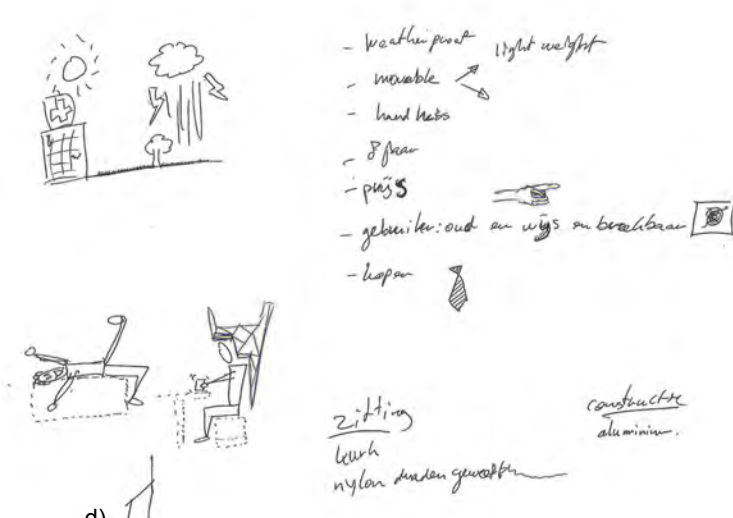 - weatherproof light weight
- movable
- hard
- 8 jaar
- prijs
- gebruiker: oud en wijs en breekbaar
- koper
zitting
kurk
nylon draden
constructie
aluminium.
d)